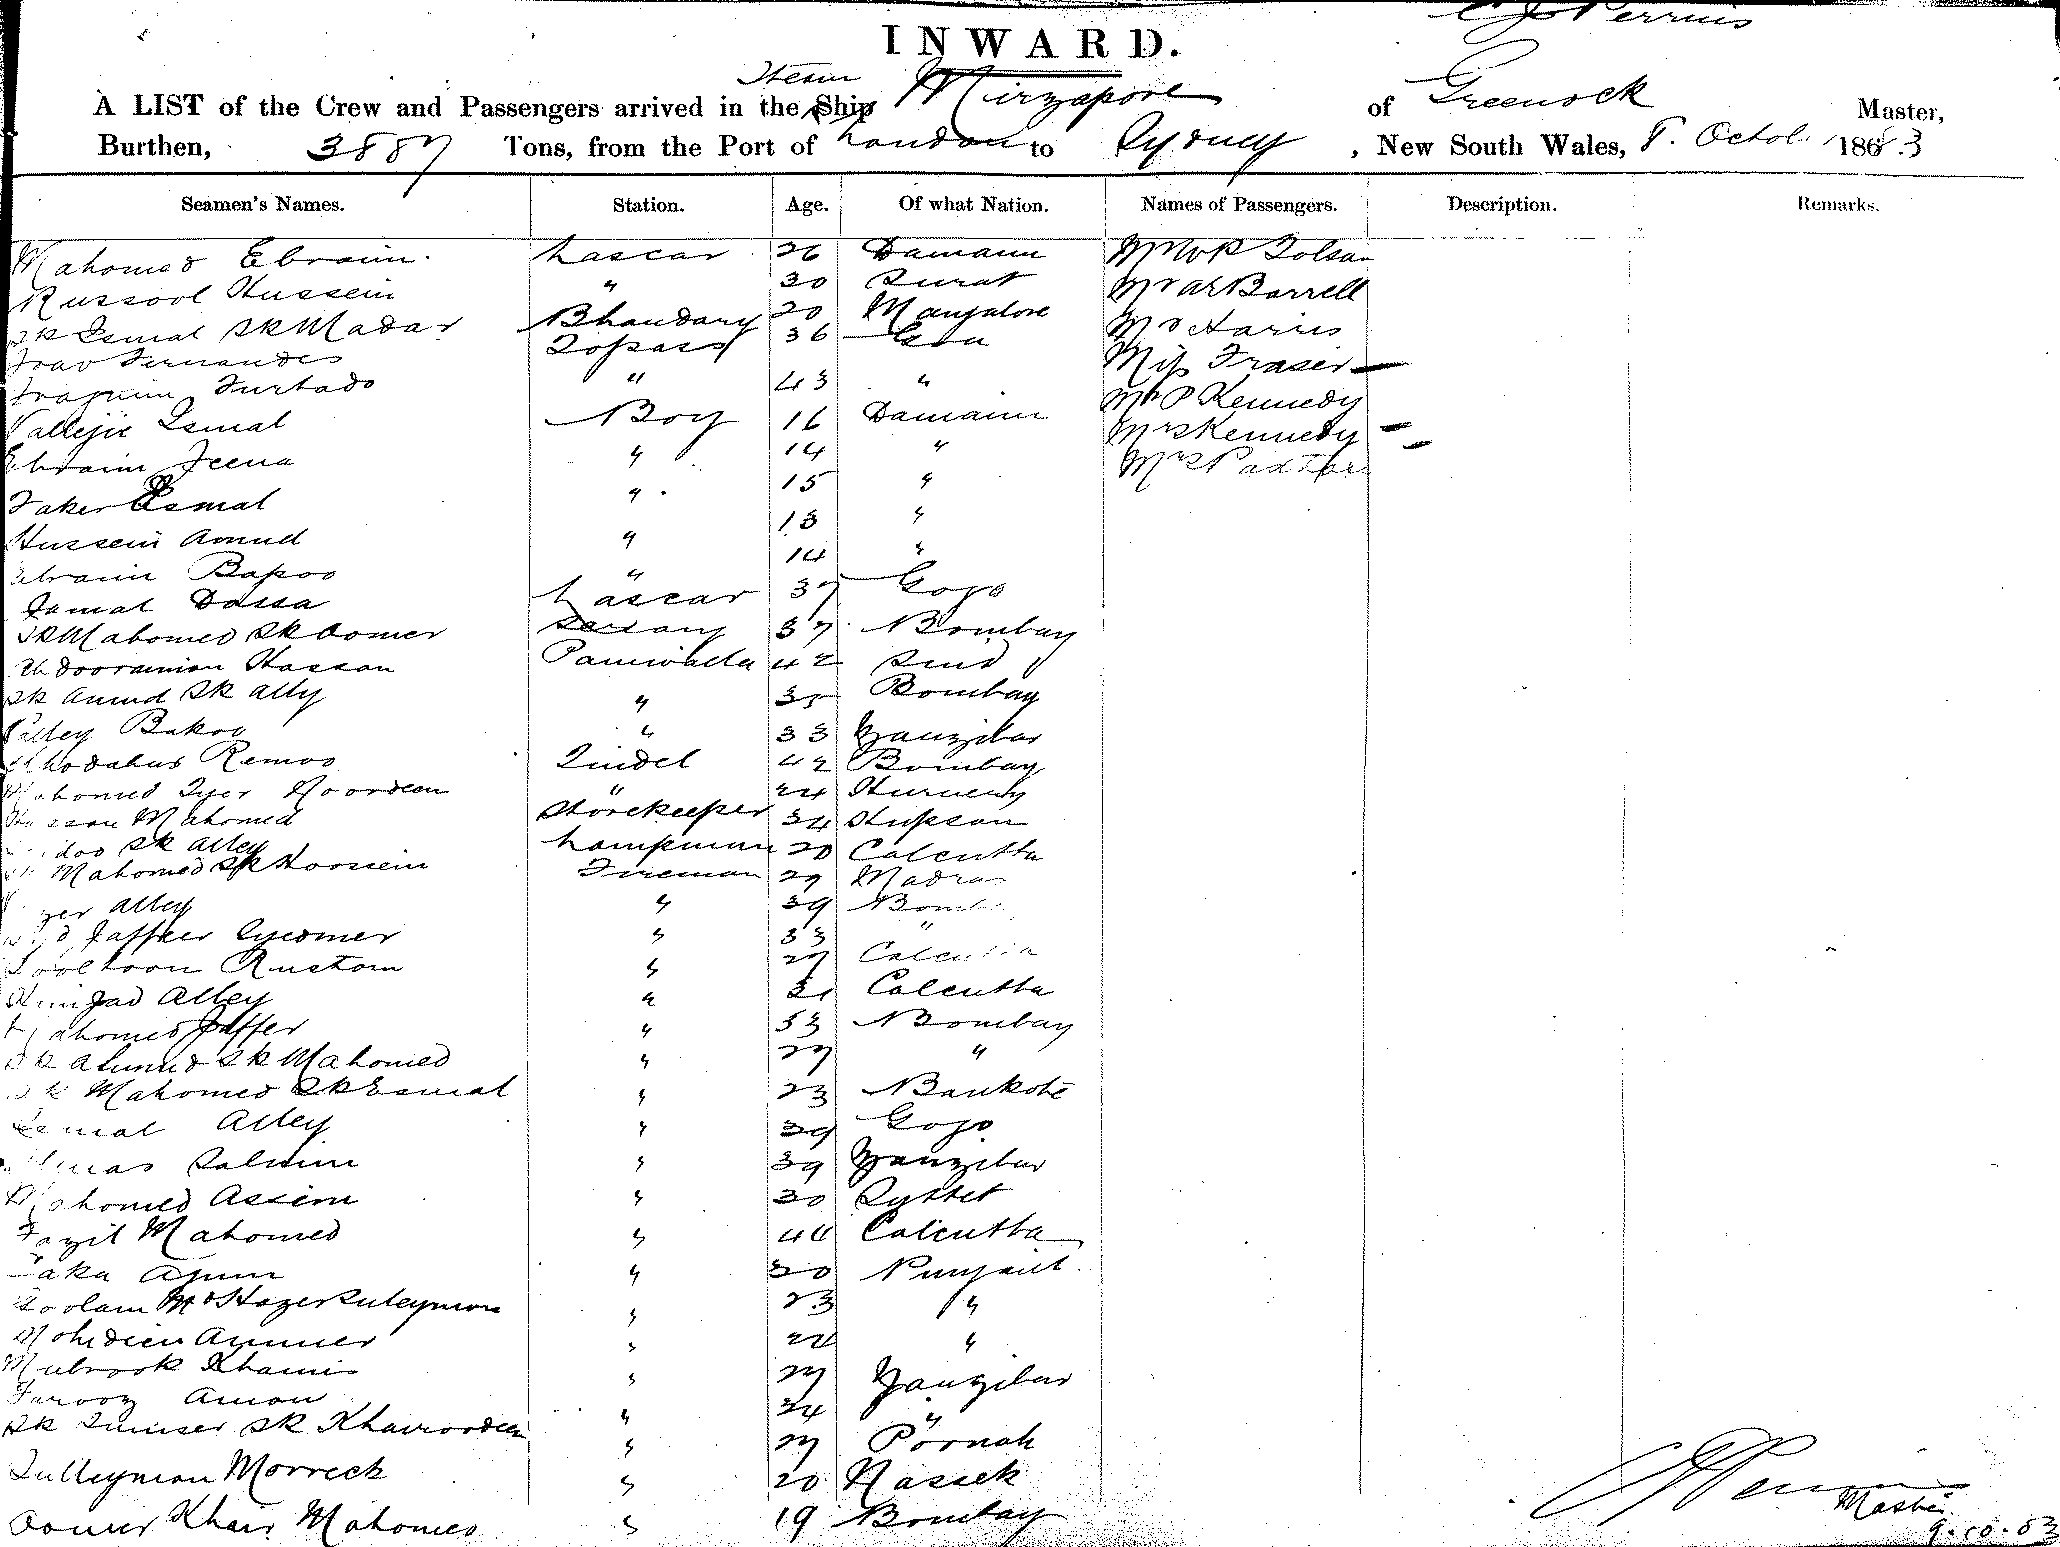 C J Perrins
INWARD.
Steam
A LIST of the Crew and Passengers arrived in the Ship Mirzapore of Greenock Master,
Burthen, 3887 Tons, from the Port of London to Sydney, New South Wales, 8. Octob. 1883
Seamen's Names. Station. Age. Of what Nation. Names of Passengers. Description. Remarks.
Mahomed Ebraim. Lascar 26 Damaun Mr W P Tolsan
Russool Hussein " 30 Surat Mr A R Barrell
Sk Esmal Sk Madar Bhandary 20 Mangalore Mr Harris
Joao Fernandes Topass 36 Goa Miss Fraser
Joaquim Furtado " 43 " Mr P Kennedy
Vallejie Esmal Boy 16 Damaun Mrs Kennedy
Ebraim Jeena " 14 " Mrs
Faker Esmal " 15 "
Hussein Amud " 13 "
Ebraim Bapoo " 14 "
Jamal Dossa Lascar 37 Gogo
Sk Mahomed Sk Oomer Serang 37 Bombay
Hassan Paniwalla 42 Sind
Sk Amud Sk Ally " 35 Bombay
Bakoo " 33 Zanzibar
Khodabus Remoo Tindel 42 Bombay
Mahomed Noordeen " 24
Hassan Mahomed Storekeeper 34
Sk Alley Lampman 20 Calcutta
Mahomed Sk Hoossein Fireman 29 Madras
Alley " 39 Bomb
Jaffer " 33 "
Rustom " 27 Calcutta
Alley " 31 Calcutta
Mahomed Jaffer " 33 Bombay
Sk Ahmud Sk Mahomed " 27 "
Sk Mahomed Sk Esmal " 23 Bankote
Esmal Alley " 29 Gogo
Salmin " 39 Zanzibar
Mahomed Assim " 30
Fazil Mahomed " 40 Calcutta
Kaka " 30 Punjaub
Goolam Md Hazer Suleyman " 23 "
Mohideen " "
Mubrook Khamis " 27 Zanzibar
Farooz Aman " 34 "
Sk Sk Khairoodeen " 27 Poonah
Sulleyman Morreck " 20 Nassek
Oomer Khair Mahomed " 19 Bombay
Master
9.10.83